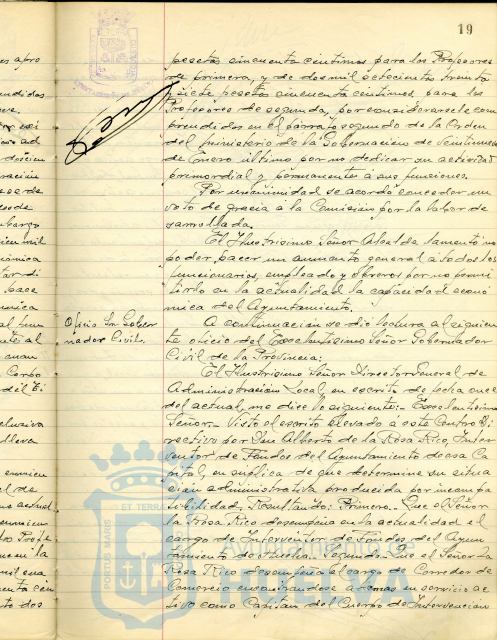 19
pesetas cincuenta centimos para los Profesores
de primera, y de dos mil setecientas treinta
y siete pesetas cincuenta centimos, para los
Profesores de segunda, por considerarsele com
prendidos en el párrafo segundo de la Orden
del Ministerio de la Gobernacion de veintinueve
de Enero último por no dedicar su actividad
primordial y permanentes á sus funciones.
Por unanimidad se acordó conceder un
voto de gracia a la Comisión por la labor de
sarrollada.
El Ilustrisimo Señor Alcalde lamentó no
poder hacer un aumento general a todos los
funcionarios, empleado y obreros por no permi
tirlo en la actualidad la capacidad econó
mica del Ayuntamiento.
Oficio Sr. Gober
nador Civil.
A continuacion se dió lectura al siguien
te oficio del Excelentisimo Señor Gobernador
Civil de la Provincia:
El Ilustrisimo Señor Director General de
Administracion Local, en escrito de fecha once
del actual, me dice lo siguiente:- Excelentisimo
Señor:- Visto el escrito elevado a este Centro Di
rectivo por Don Alberto de la Rosa Rico, Inter
ventor de Fondos del Ayuntamiento de esa Ca
pital, en suplica de que determine su situa
cion administrativa producida por incompa
tibilidad, Resultando: Primero. Que el Señor
la Rosa Rico desempeña en la actualidad el
cargo de Interventor de Fondos del Ayun
tamiento de Huelva. Segundo: Que el Señor La
Rosa Rico desempeña el cargo de Corredor de
Comercio encontrandose ademas en servicio ac
tivo como Capitan del Cuerpo de Intervencion
PORTUS MARIS ET TERRAE
Ayuntamiento de
HUELVA